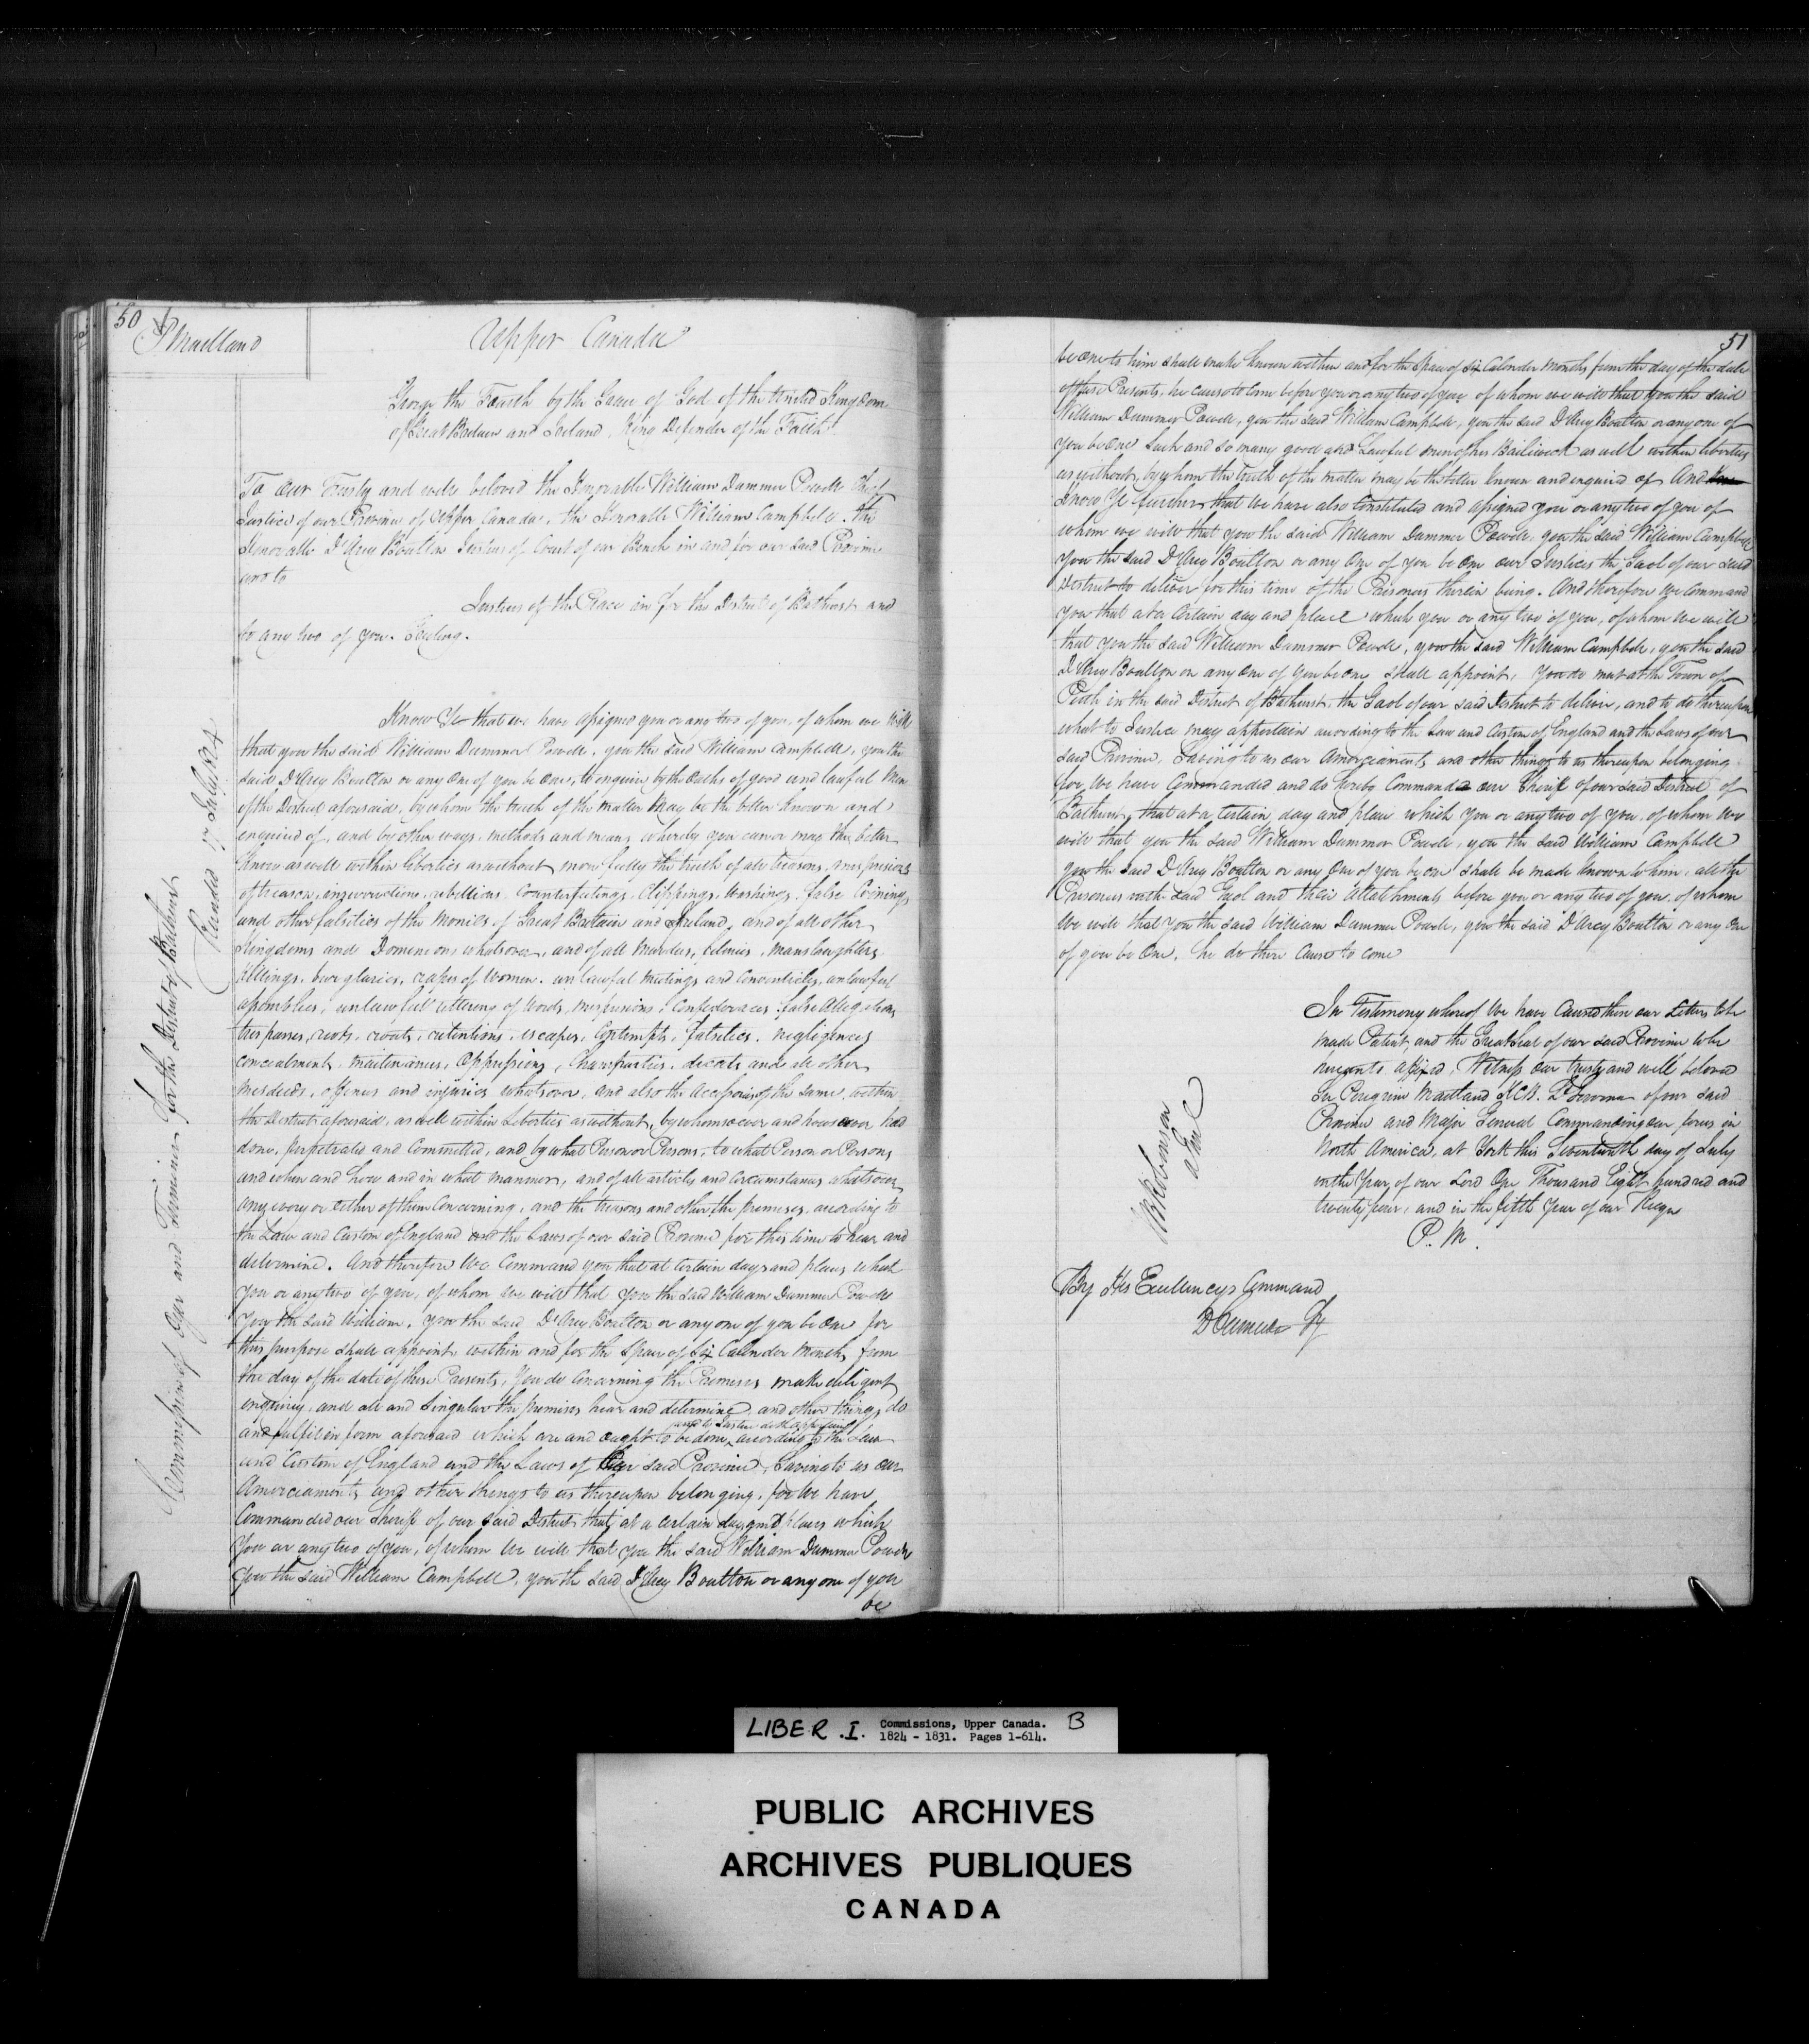 50
P Maitland
Upper Canada
George the Fourth by the Grace of God of the United Kingdom
of Great Britain and Ireland, King Defender of the Faith
To Our Trusty and well beloved the Honorable William Dummer Powell Chief
Justice of our Province of Upper Canada, the Honorable William Campbell, the
Honorable D'Arcy Boulton Justices of Court of our Bench in and for our said Province
and to
Justices of the Peace in for the District of Bathurst and
to any two of you. Greeting.
Commission of Oyer and Terminer for the District of Bathurst
Recorded 17 July 1824
Know Ye that we have assigned you or any two of you, of whom we will
that you the said William Dummer Powell, you the said William Campbell, you the
said D'Arcy Boulton or any One of you be One, to enquire by the Oaths of good and lawful Men
of the District aforesaid, by whom the truth of the matter may be the better known and
enquired of, and by other ways, methods and means whereby you can or may the better
know as well within liberties as without more fully the truth of all treasons, misprisions
of treason, insurrections, rebellions, Counterfeitings, Clippings, Washings, false Coinings
and other falsities of the Monies of Great Brittain and Ireland, and of all other
Kingdoms and Dominions whatsoever, and of all Murders, felonies, Manslaughters
Killings, burglaries, rapes of Women, unlawful meetings and Conventicles, unlawful
assemblies, unlawful uttering of Words, misprisions, Confederacies, false Allegations
trespasses, riots, routs, retentions, escapes, Contempts, falsities, negligences
concealments, maintenances, Oppressions, Champarties, deceits and all other
misdeeds, offences and injuries whatsoever, and also the Accessories of the Same, within
the District aforesaid, as well within Liberties as without, by whomsoever and howsoever had
done, perpetrated and Committed, and by what Person or Persons, to what Person or Persons
and when and how and in what manner, and of all articles and Circumstances whatsoever
any every or either of them Concerning, and the treasons and other the premises, according to
the Law and Custom of England and the Laws of our said Province for this time to hear and
determine. And therefore We Command you that at Certain days and places which
you or any two of you, of whom we will that you the said William Dummer Powell
you the said William, you the said D'Arcy Boulton or any one of you be One for
this purpose shall appoint within and for the Space of Six Calender Months from
the day of the date of these Presents, You do Concerning the Premises make diligent
enquiry, and all and Singular the premises hear and determine and other things do
and to Justice doth appertain
and fulfil in form aforesaid which are and ought to be done, according to the Law
and Custom of England and the Laws of Our said Province, Saving to us our
Amerciaments and other things to us thereupon belonging, for We have
Commanded our Sheriff of our said District that at a certain day and places which
You or any two of you, of whom We will that you the said William Dummer Powell
you the said William Campbell, you the said D'Arcy Boulton or any one of you
be
51
be One to him shall make known within and for the Space of Six Calender Months from the day of the date
of these Presents, he cause to Come before you or any two of you of whom we will that you the said
William Dummer Powell, you the said William Campbell, you the said D'Arcy Boulton or any one of
you be One Such and so many good and Lawful men of his Bailiwick as well within liberties
as without, by whom the Truth of the matter may be the better known and enquired of And
Know Ye further that We have also Constituted and assigned you or any two of you of
whom we will that you the said William Dummer Powell, you the said William Campbell
you the said D'Arcy Boulton or any One of you be One our Justices the Gaol of our said
District to deliver for this time of the Prisoners therein being. And therefore We Command
you that at a Certain day and place which you or any two of you, of whom We will
that you the said William Dummer Powell, you the said William Campbell, you the said
D'Arcy Boulton or any One of you be One, shall appoint, You do meet at the Town of
Perth in the said District of Bathurst, the Gaol of our said District to deliver, and to do thereupon
what to Justice may appertain according to the Law and Custom of England and the Laws of our
said Province, Saving to us our Amerciaments and other things to us thereupon belonging
for We have Commanded and do hereby Command our Sheriff of our said District of
Bathurst that at a Certain day and place which You or any two of you, of whom We
will that you the said William Dummer Powell, you the said William Campbell
you the said D'Arcy Boulton or any One of you be one shall be made known to him, all the
Prisoners in the said Gaol and their Attatchments before you or any two of you, of whom
We will that you the said William Dummer Powell, you the said D'Arcy Boulton or any One
of you be One, he do there Cause to come
In Testimony whereof We have Caused these our Letters to be
made Patent, and the Great Seal of our said Province to be
hereunto affixed, Witness our trusty and well beloved
Sir Peregrine Maitland K.C.B. Lt Governor of our said
Province and Major General Commanding our forces in
North America, at York this Seventeenth day of July
in the Year of our Lord One Thousand Eight hundred and
twenty four, and in the fifth Year of our Reign
P. M.
J B Robinson
By His Excellencys Command
D Cameron Sy
LIBER .I. Commissions, Upper Canada. B
1824 - 1831. Pages 1-614.
PUBLIC ARCHIVES
ARCHIVES PUBLIQUES
CANADA